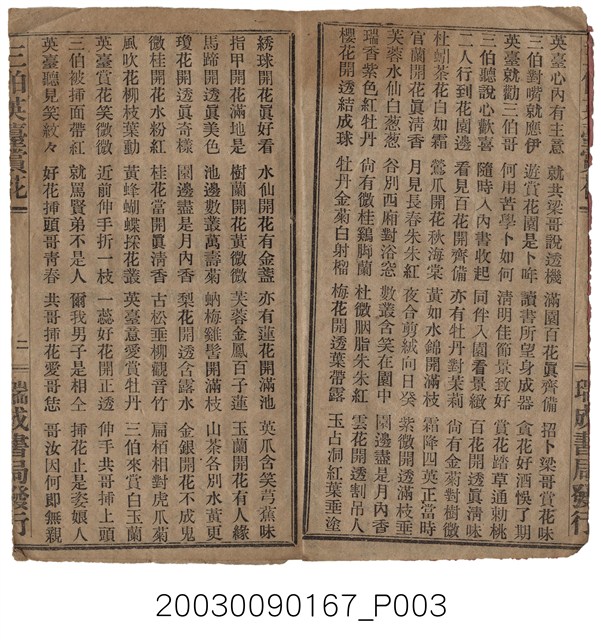 英臺心內有主意 就共梁哥說透機 滿園百花眞齊備 招卜梁哥賞花味
三伯對嘴就應伊 遊賞花園是卜呣 讀書所望身成器 貪花好酒悞了期
英臺就勸三伯哥 何用苦學卜如何 清明佳節景致好 賞花踏草通勅桃
三伯聽說心歡喜 隨時入內書收起 同伴入園看景緻 百花開透眞清味
二人行到花園邊 看見百花開齊備 亦有牡丹對茉莉 尙有金菊對樹微
杜蚓茶花白如霜 鶯爪開花秋海棠 黃如水錦開滿枝 霜降四英正當時
官蘭開花眞清香 月見長春朱朱紅 夜合剪絨向日癸 紫微開透滿枝垂
芙蓉水仙白葱葱 谷別西廂對浴窓 數叢含笑在園中 園邊盡是月內香
瑞香紫色紅牡丹 尙有微桂鷄脚蘭 杜微胭脂朱朱紅 雲花開透割吊人
櫻花開透結成球 牡丹金菊白射榴 梅花開透葉帶露 玉占洞紅葉垂塗
三伯英臺賞花
二
瑞成書局發行
綉球開花眞好看 水仙開花有金盞 亦有蓮花開滿池 英爪含笑芎蕉味
指甲開花滿地是 樹蘭開花黃微微 芙蓉金鳳百子蓮 玉蘭開花有人緣
馬蹄開透眞美色 池邊數叢萬壽菊 蚋梅雞髻開滿枝 山茶各別水黃更
瓊花開透眞奇樣 園邊盡是月內香 梨花開透含露水 金銀開花不成鬼
微桂開花水粉紅 桂花當開眞清香 古松垂柳觀音竹 扁栢相對虎爪菊
風吹花柳枝葉動 黃蜂蝴蝶採花叢 英臺意愛賞牡丹 三伯來賞白玉蘭
英臺賞花笑微微 近前伸手折一枝 一蕊好花開正透 伸手共哥挿上頭
三伯被挿面帶紅 就罵賢弟不是人 爾我男子是相仝 挿花止是娄娘人
英臺聽見笑紋々 好花挿頭哥靑春 共哥挿花愛哥恁 哥汝因何卽無親